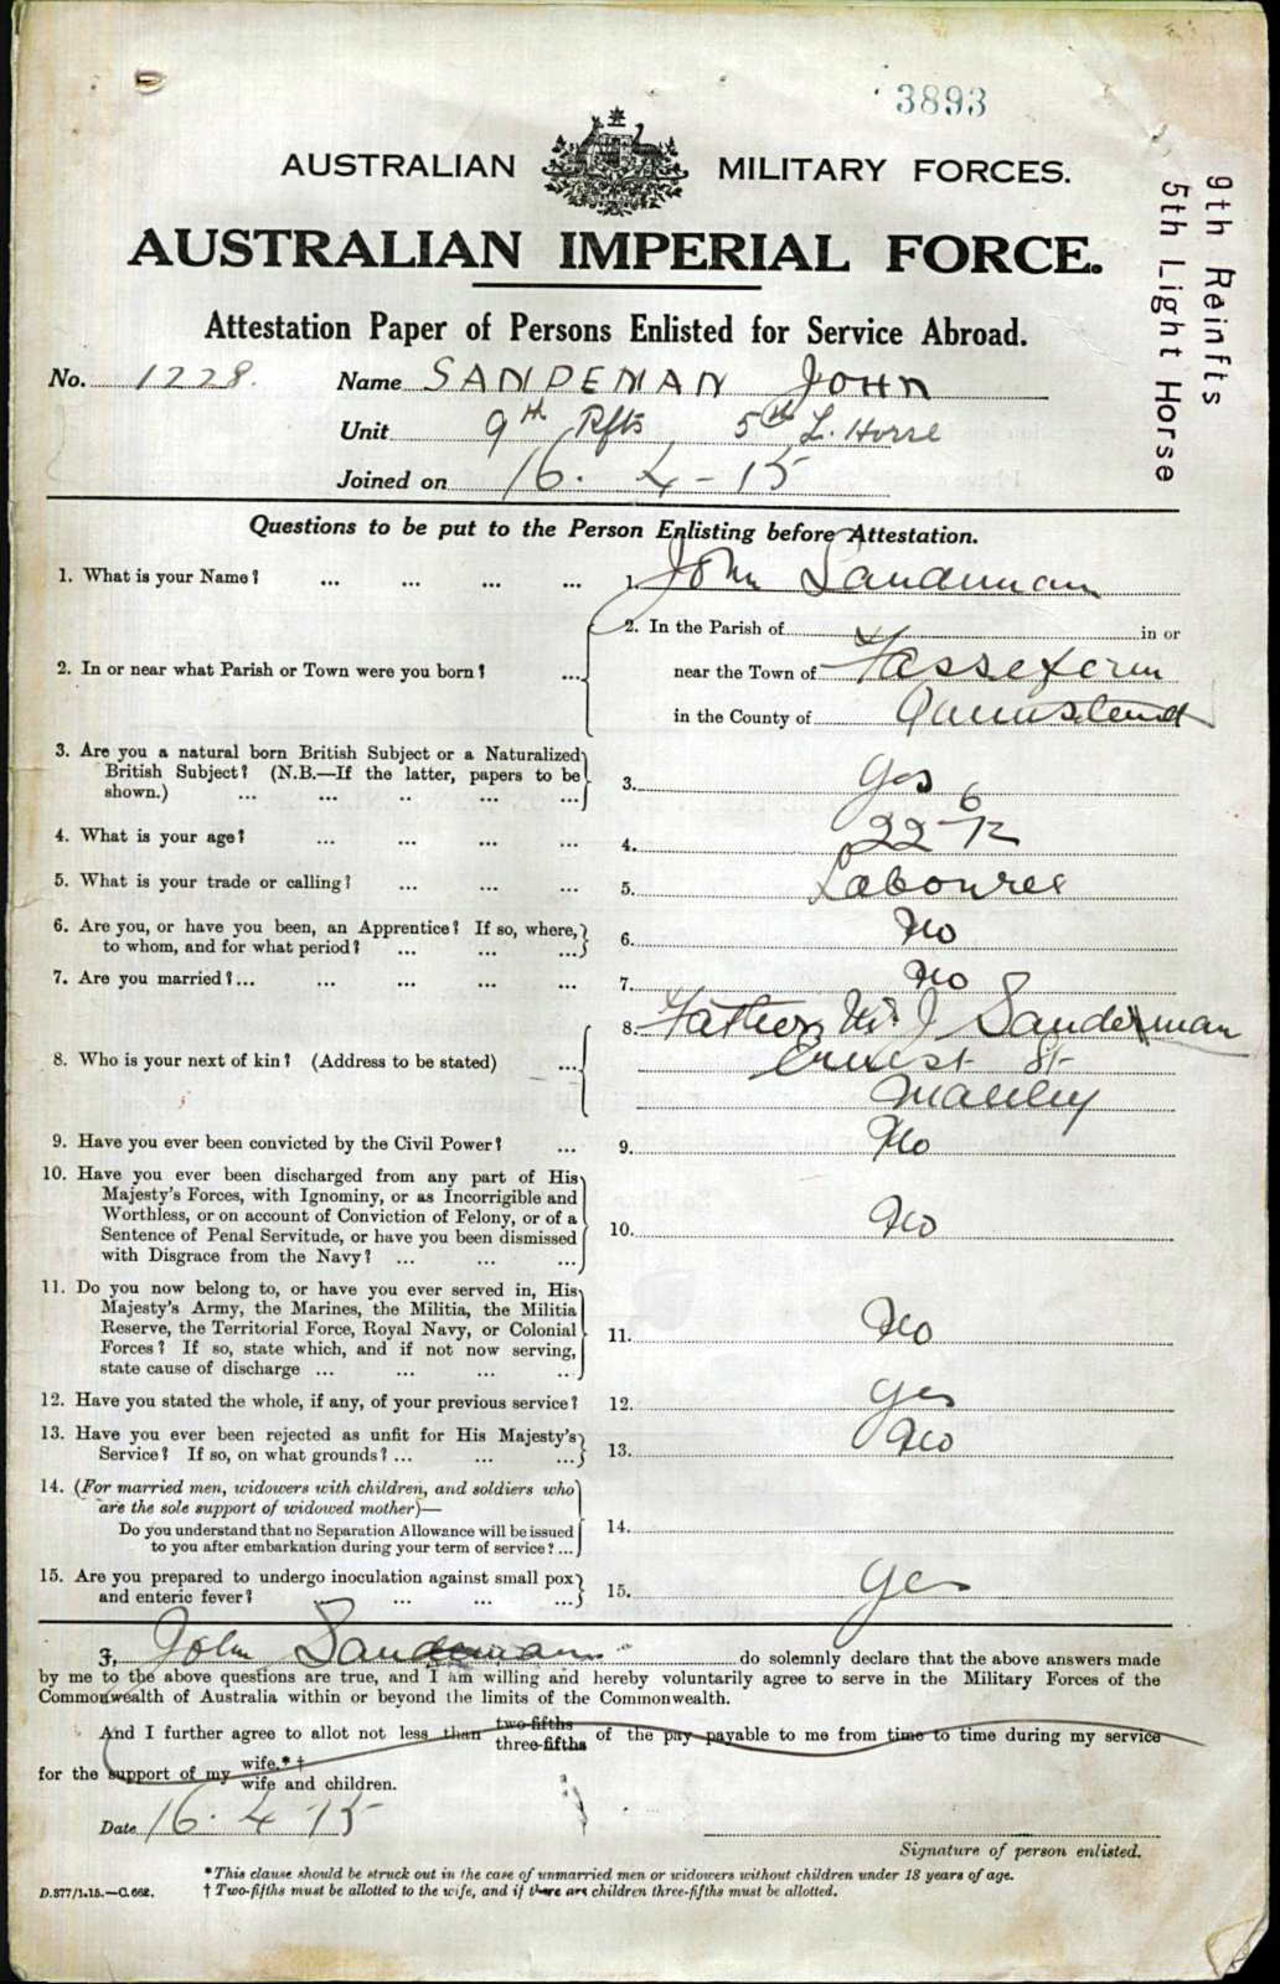 3893
AUSTRALIAN MILITARY FORCES.
AUSTRALIAN IMPERIAL FORCE.
9th Reinfts
5th Light Horse
Attestation Paper of Persons Enlisted for Service Abroad.
No. 1228. Name SANDEMAN JOHN
Unit 9th Rfts 5th L. Horse
Joined on 16. 4-15
Questions to be put to the Person Enlisting before Attestation.
1. What is your Name? ... ... ... ... 1. John Sandeman
2. In the Parish of in or
2. In or near what Parish or Town were you born? ... near the Town of Fassefern
in the County of Queensland
3. Are you a natural born British Subject or a Naturalized
British Subject? (N.B.—If the latter, papers to be 3. Yes
shown.) ... ... .. ... ...
4. What is your age? ... ... ... ... 4. 22 6/12
5. What is your trade or calling? ... ... ... 5. Labourer
6. Are you, or have you been, an Apprentice? If so, where,
to whom, and for what period? ... ... ... 6. No
7. Are you married?... ... ... ... ... 7. No
8. Father W. J Sandeman
8. Who is your next of kin? (Address to be stated) ... Ernest St
Manly
9. Have you ever been convicted by the Civil Power? ... 9. No
10. Have you ever been discharged from any part of His
Majesty's Forces, with Ignominy, or as Incorrigible and
Worthless, or on account of Conviction of Felony, or of a
Sentence of Penal Servitude, or have you been dismissed 10. No
with Disgrace from the Navy? ... ... ...
11. Do you now belong to, or have you ever served in, His
Majesty's Army, the Marines, the Militia, the Militia
Reserve, the Territorial Force, Royal Navy, or Colonial 11. No
Forces? If so, state which, and if not now serving,
state cause of discharge ... ... ... ..
12. Have you stated the whole, if any, of your previous service? 12. Yes
13. Have you ever been rejected as unfit for His Majesty's
Service? If so, on what grounds? ... ... ... 13. No
14. (For married men, widowers with children, and soldiers who
are the sole support of widowed mother)—
Do you understand that no Separation Allowance will be issued 14.
to you after embarkation during your term of service? ...
15. Are you prepared to undergo inoculation against small pox
and enteric fever? ... ... ... 15. Yes
I, John Sandeman do solemnly declare that the above answers made
by me to the above questions are true, and I am willing and hereby voluntarily agree to serve in the Military Forces of the
Commonwealth of Australia within or beyond the limits of the Commonwealth.
And I further agree to allot not less than two-fifths three-fifths of the pay payable to me from time to time during my service
for the support of my wife.*† wife and children.
Date 16. 4 15
Signature of person enlisted.
*This clause should be struck out in the case of unmarried men or widowers without children under 18 years of age.
D.877/1.15.—C.662. † Two-fifths must be allotted to the wife, and if there are children three-fifths must be allotted.